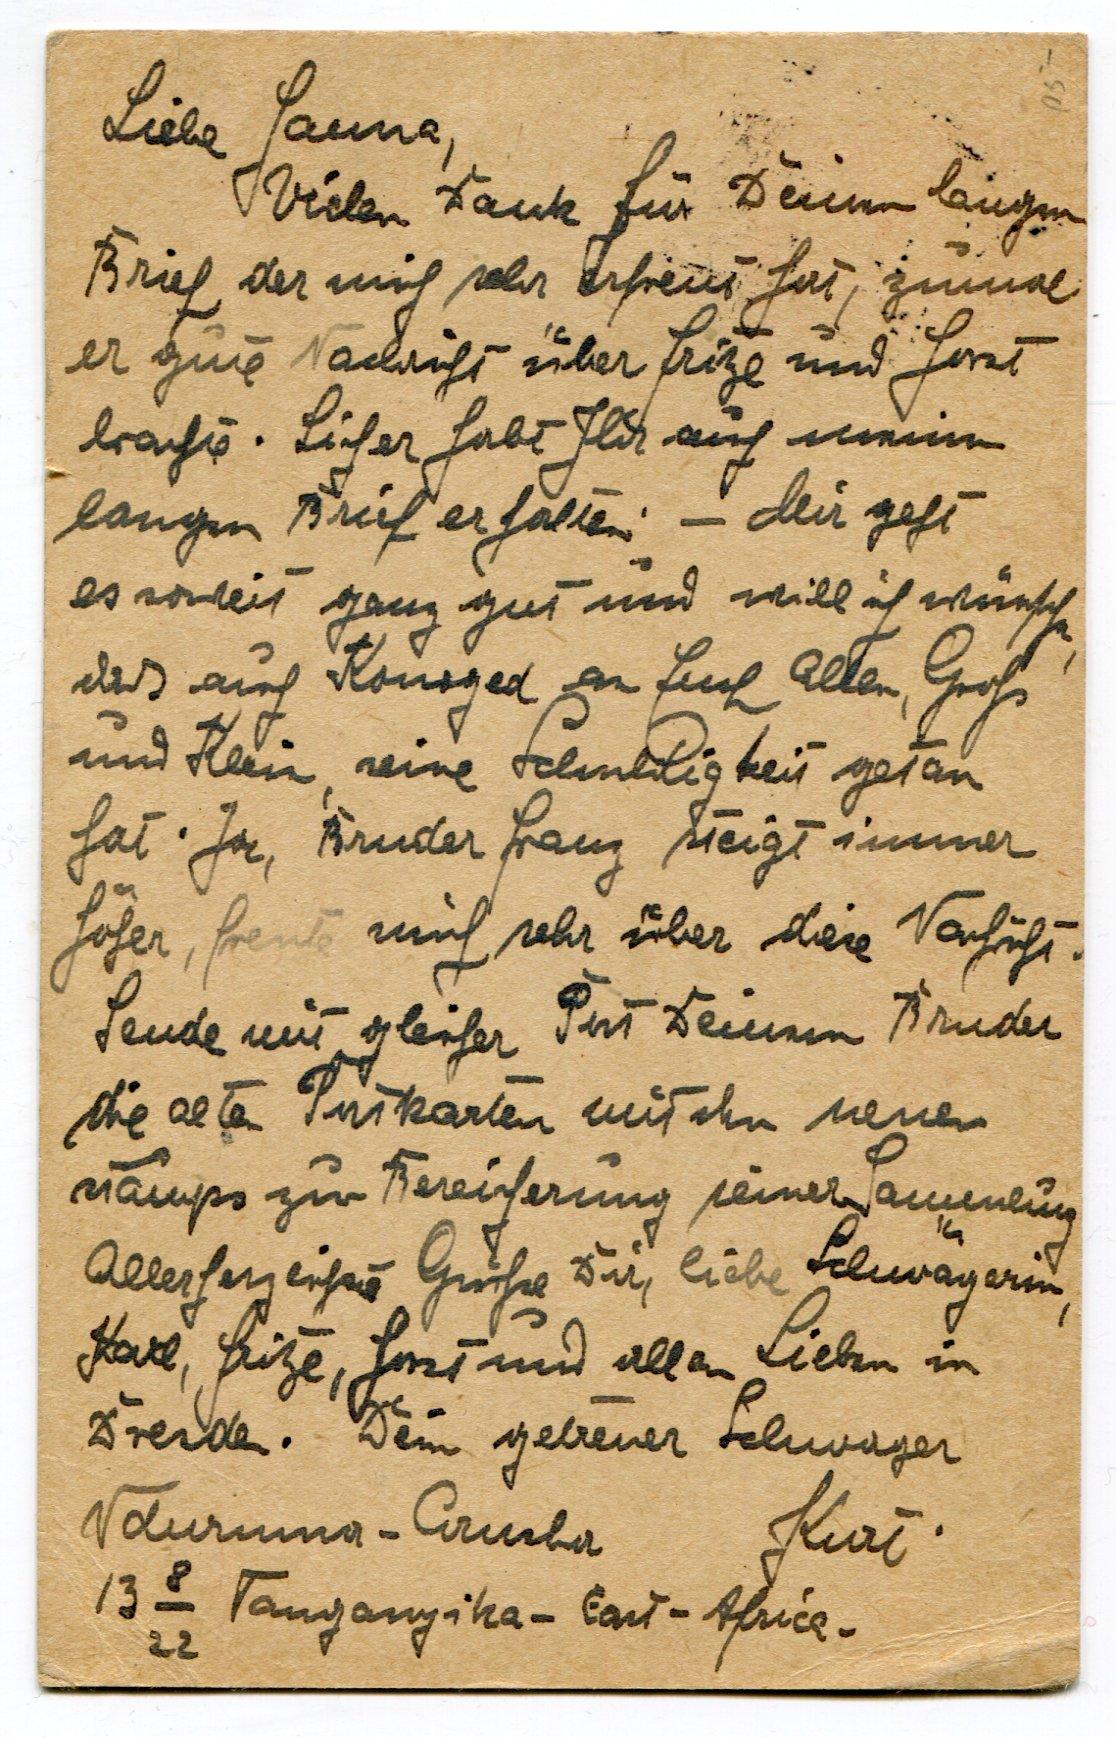 Liebe Hanna,
Vielen Dank für Deinen langen
Brief der mich sehr erfreut hat, zumal
er gute Nachricht über Fritze und Horst
brachte. Sicher habt Ihr auch meinen
langen Brief erhalten. – Mir geht
es soweit ganz gut und will ich wünschen,
dass auch an Euch Allen, Groß
und Klein, seine Schuldigkeit getan
hat. Ja, Bruder Franz steigt immer
höher, freute mich sehr über diese Nachricht.
Sende mit gleicher Post Deinem Bruder
die alten Postkarten mit den neuen
Stamps zur Bereicherung seiner Sammlung
Allerherzlichste Grüße Dir, liebe Schwägerin,
Karl, Fritze, Horst und allen Lieben in
Dresden. Dein getreuer Schwager
Kurt.
13 8/22 Tanganyika – East – Africa –